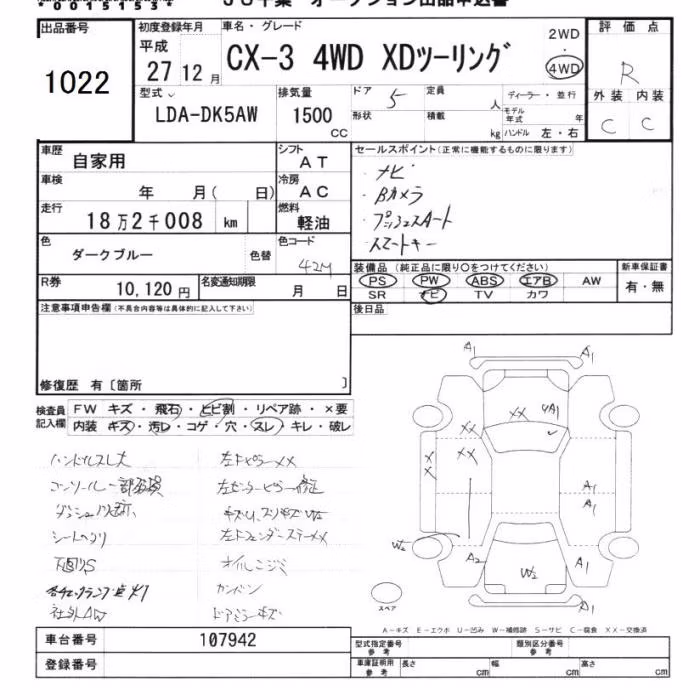 出品番号
1022
初度登録年月
平成
27 12 月
車名・グレード
CX-3 4WD XDツーリング
2WD
・
4WD
評価点
R
外装 内装
C C
型式
LDA-DK5AW
排気量
1500
CC
ドア 5
定員
人
形状
積載
kg
ディーラー・並行
モデル年式 年
ハンドル 左・右
車歴
自家用
シフト
AT
車検
年 月( 日)
冷房
AC
走行
18万2千008 km
燃料
軽油
色
ダークブルー
色替
色コード
42M
R券
10,120円
名変通知期限
月 日
セールスポイント(正常に機能するものに限ります)
・ナビ
・Bカメラ
・プッシュスタート
・スマートキー
装備品 (純正品に限り○をつけてください)
PS PW ABS エアB AW
SR ナビ TV カワ
新車保証書
有・無
後日品
注意事項申告欄(不具合内容等は具体的に記入して下さい)
修復歴 有〔箇所 〕
検査員記入欄
FW キズ・飛石・ヒビ割・リペア跡・×要
内装 キズ・汚レ・コゲ・穴・スレ・キレ・破レ
ハンドルスレ大
左Fピラーxx
左センターピラー修正
シートヘタリ
左Fフェンダーステーxx
下回りS
オイルニジミ
カンバン
社外AW
ドアミラーキズ
A1 A1
xx 4A1
xx
xx
x
x
A1
A1
W2
A2
W2
A1
A1
スペア
A-キズ E-エクボ U-凹み W-補修跡 S-サビ C-腐食 XX-交換済
車台番号
107942
登録番号
型式指定番号
参考
類別区分番号
参考
車庫証明用
参考
長さ cm
幅 cm
高さ cm